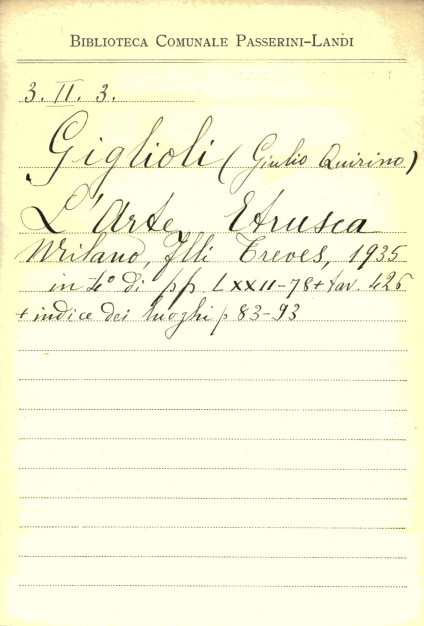 BIBLIOTECA COMUNALE PASSERINI-LANDI
3. II. 3.
Giglioli (Giulio Quirino)
L'Arte Etrusca
Milano, Flli Treves, 1935
in 4° di pp LXXII-78 + tav. 426
+ indice dei luoghi p 83-93